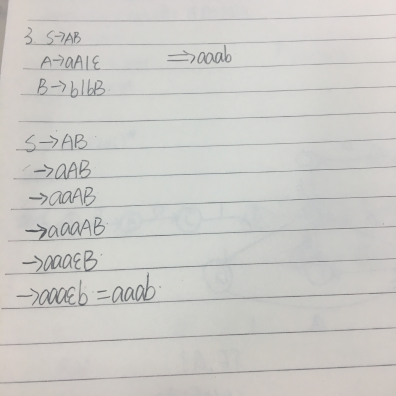 3 S→AB
A→aA|ε ⟹aaab
B→b|bB
S→AB
→aAB
→aaAB
→aaaAB
→aaaεB
→aaaεb = aaab